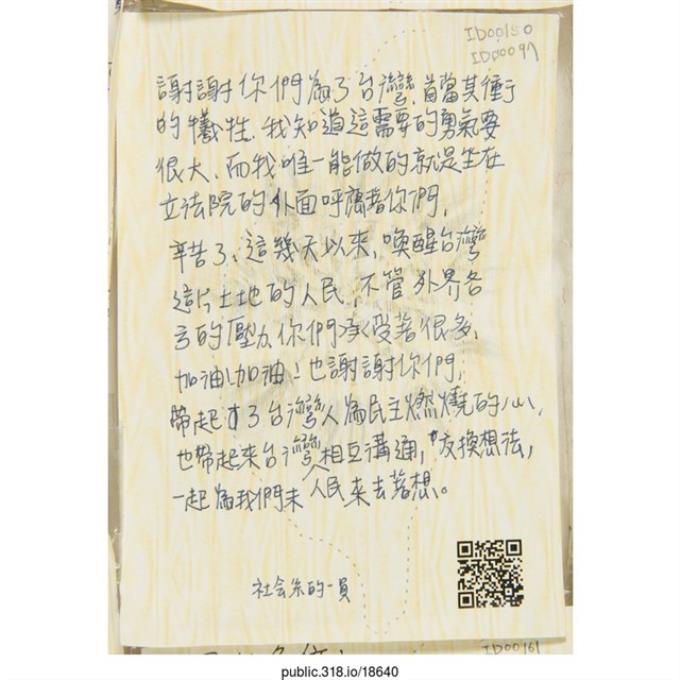 ID00150
ID00097
謝謝你們為了台灣,首當其衝
的犧牲.我知道這需要的勇氣要
很大、而我唯一能做的就是坐在
立法院的外面呼應著你們,
辛苦了、這幾天以來,喚醒台灣
這片土地的人民,不管外界各
方的壓力你們承受著很多,
加油!加油!也謝謝你們,
帶起了台灣人為民主燃燒的心,
也帶起來台灣人相互溝通,交換想法,
一起為我們未 人民來去著想。
社会系的一員
ID00161
public.318.io/18640